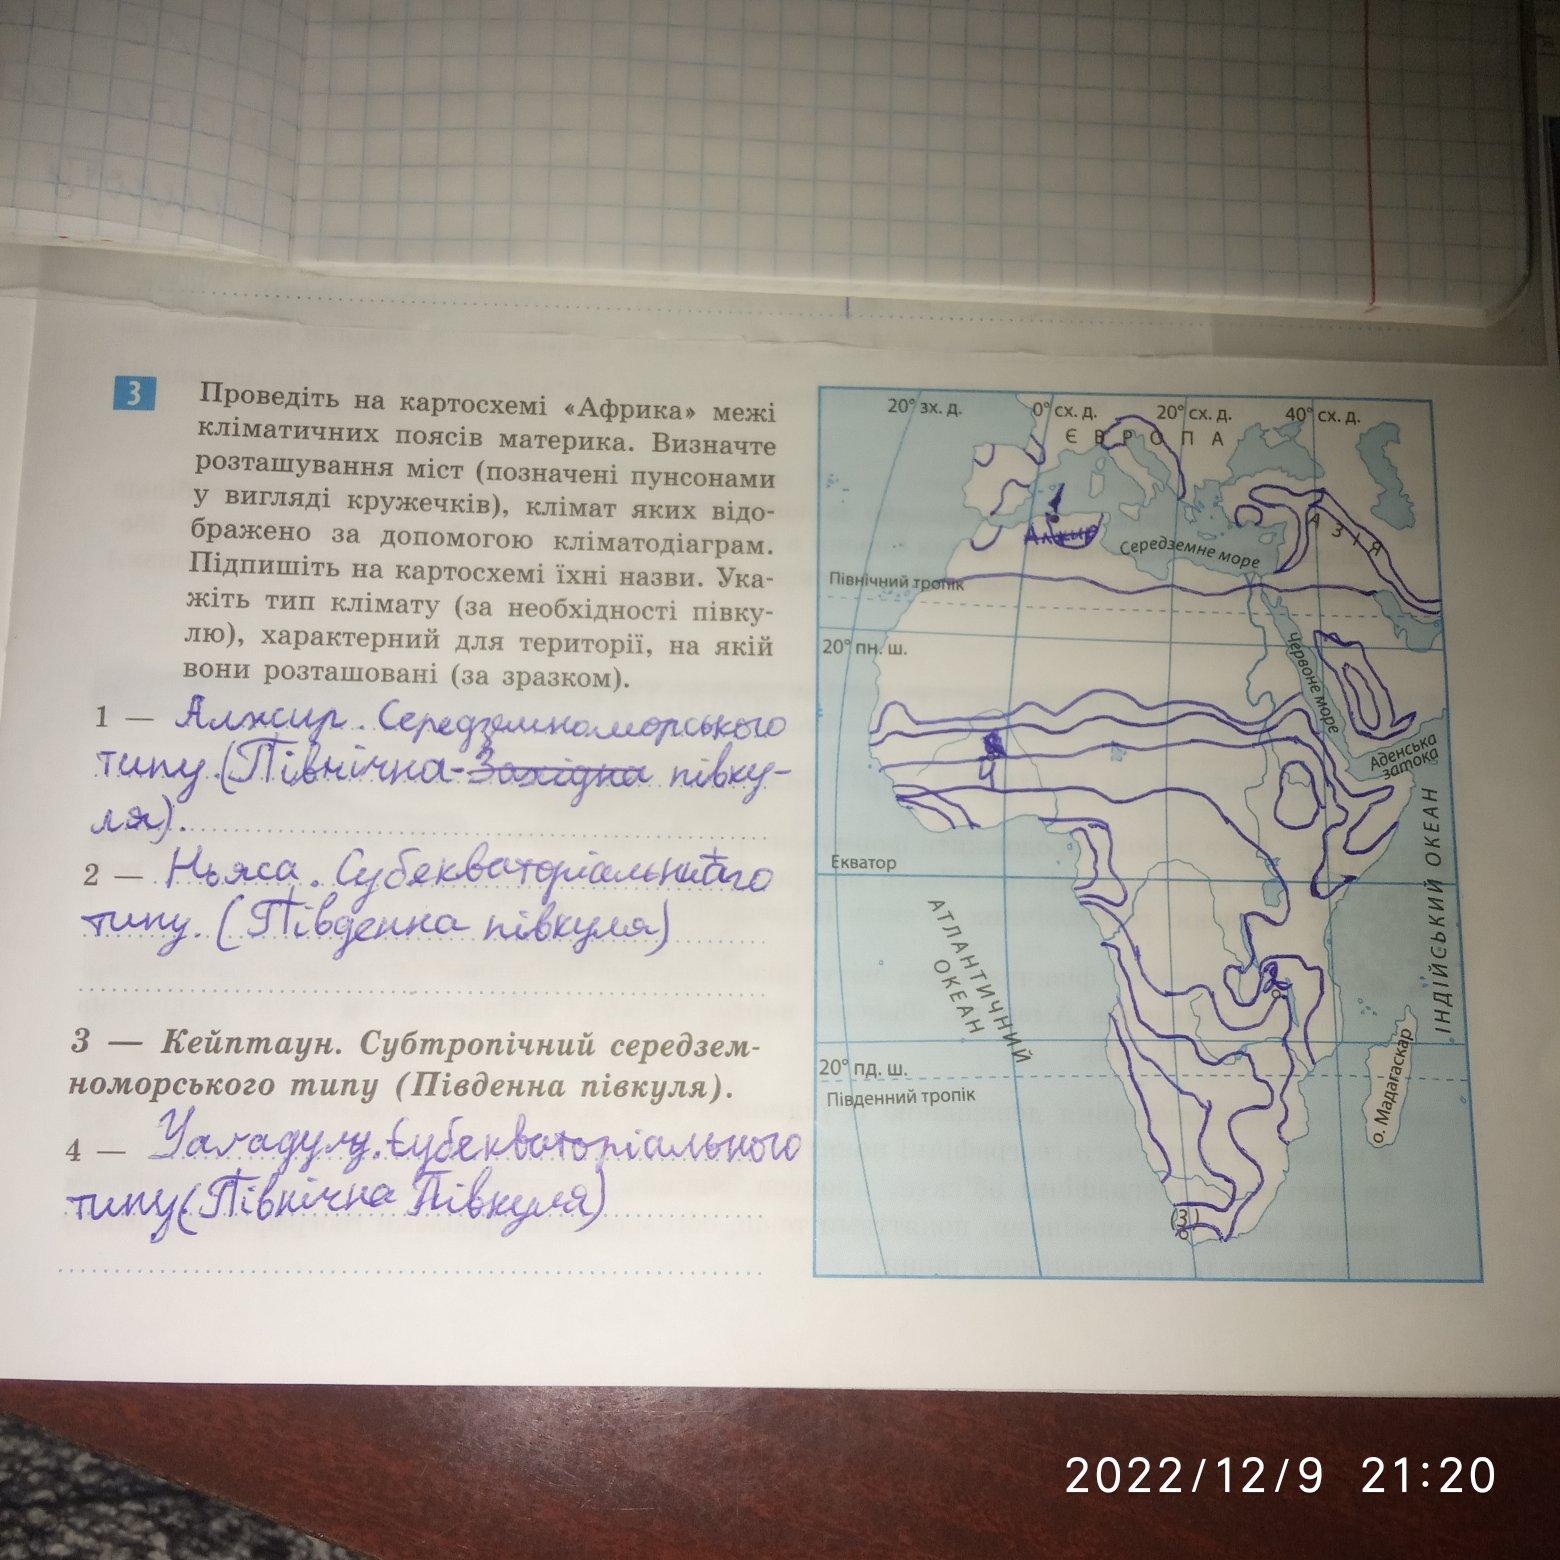 3
Проведіть на картосхемі «Африка» межі
кліматичних поясів материка. Визначте
розташування міст (позначені пунсонами
у вигляді кружечків), клімат яких відо-
бражено за допомогою кліматодіаграм.
Підпишіть на картосхемі їхні назви. Ука-
жіть тип клімату (за необхідності півку-
лю), характерний для території, на якій
вони розташовані (за зразком).
1 — Алжир. Середземноморського
типу. (Північна-Західна півку-
ля).
2 — Ньяса. Субекваторіального
типу. (Південна півкуля)
3 — Кейптаун. Субтропічний середзем-
номорського типу (Південна півкуля).
4 — Уагадугу. Субекваторіального
типу (Північна Півкуля)
20° зх. д.
0° сх. д.
20° сх. д.
40° сх. д.
ЄВРОПА
АЗІЯ
1
Алжир
Середземне море
Північний тропік
20° пн. ш.
Червоне море
Аденська
затока
4
Екватор
АТЛАНТИЧНИЙ
ОКЕАН
ІНДІЙСЬКИЙ ОКЕАН
2
20° пд. ш.
Південний тропік
о. Мадагаскар
(3)
2022/12/9 21:20